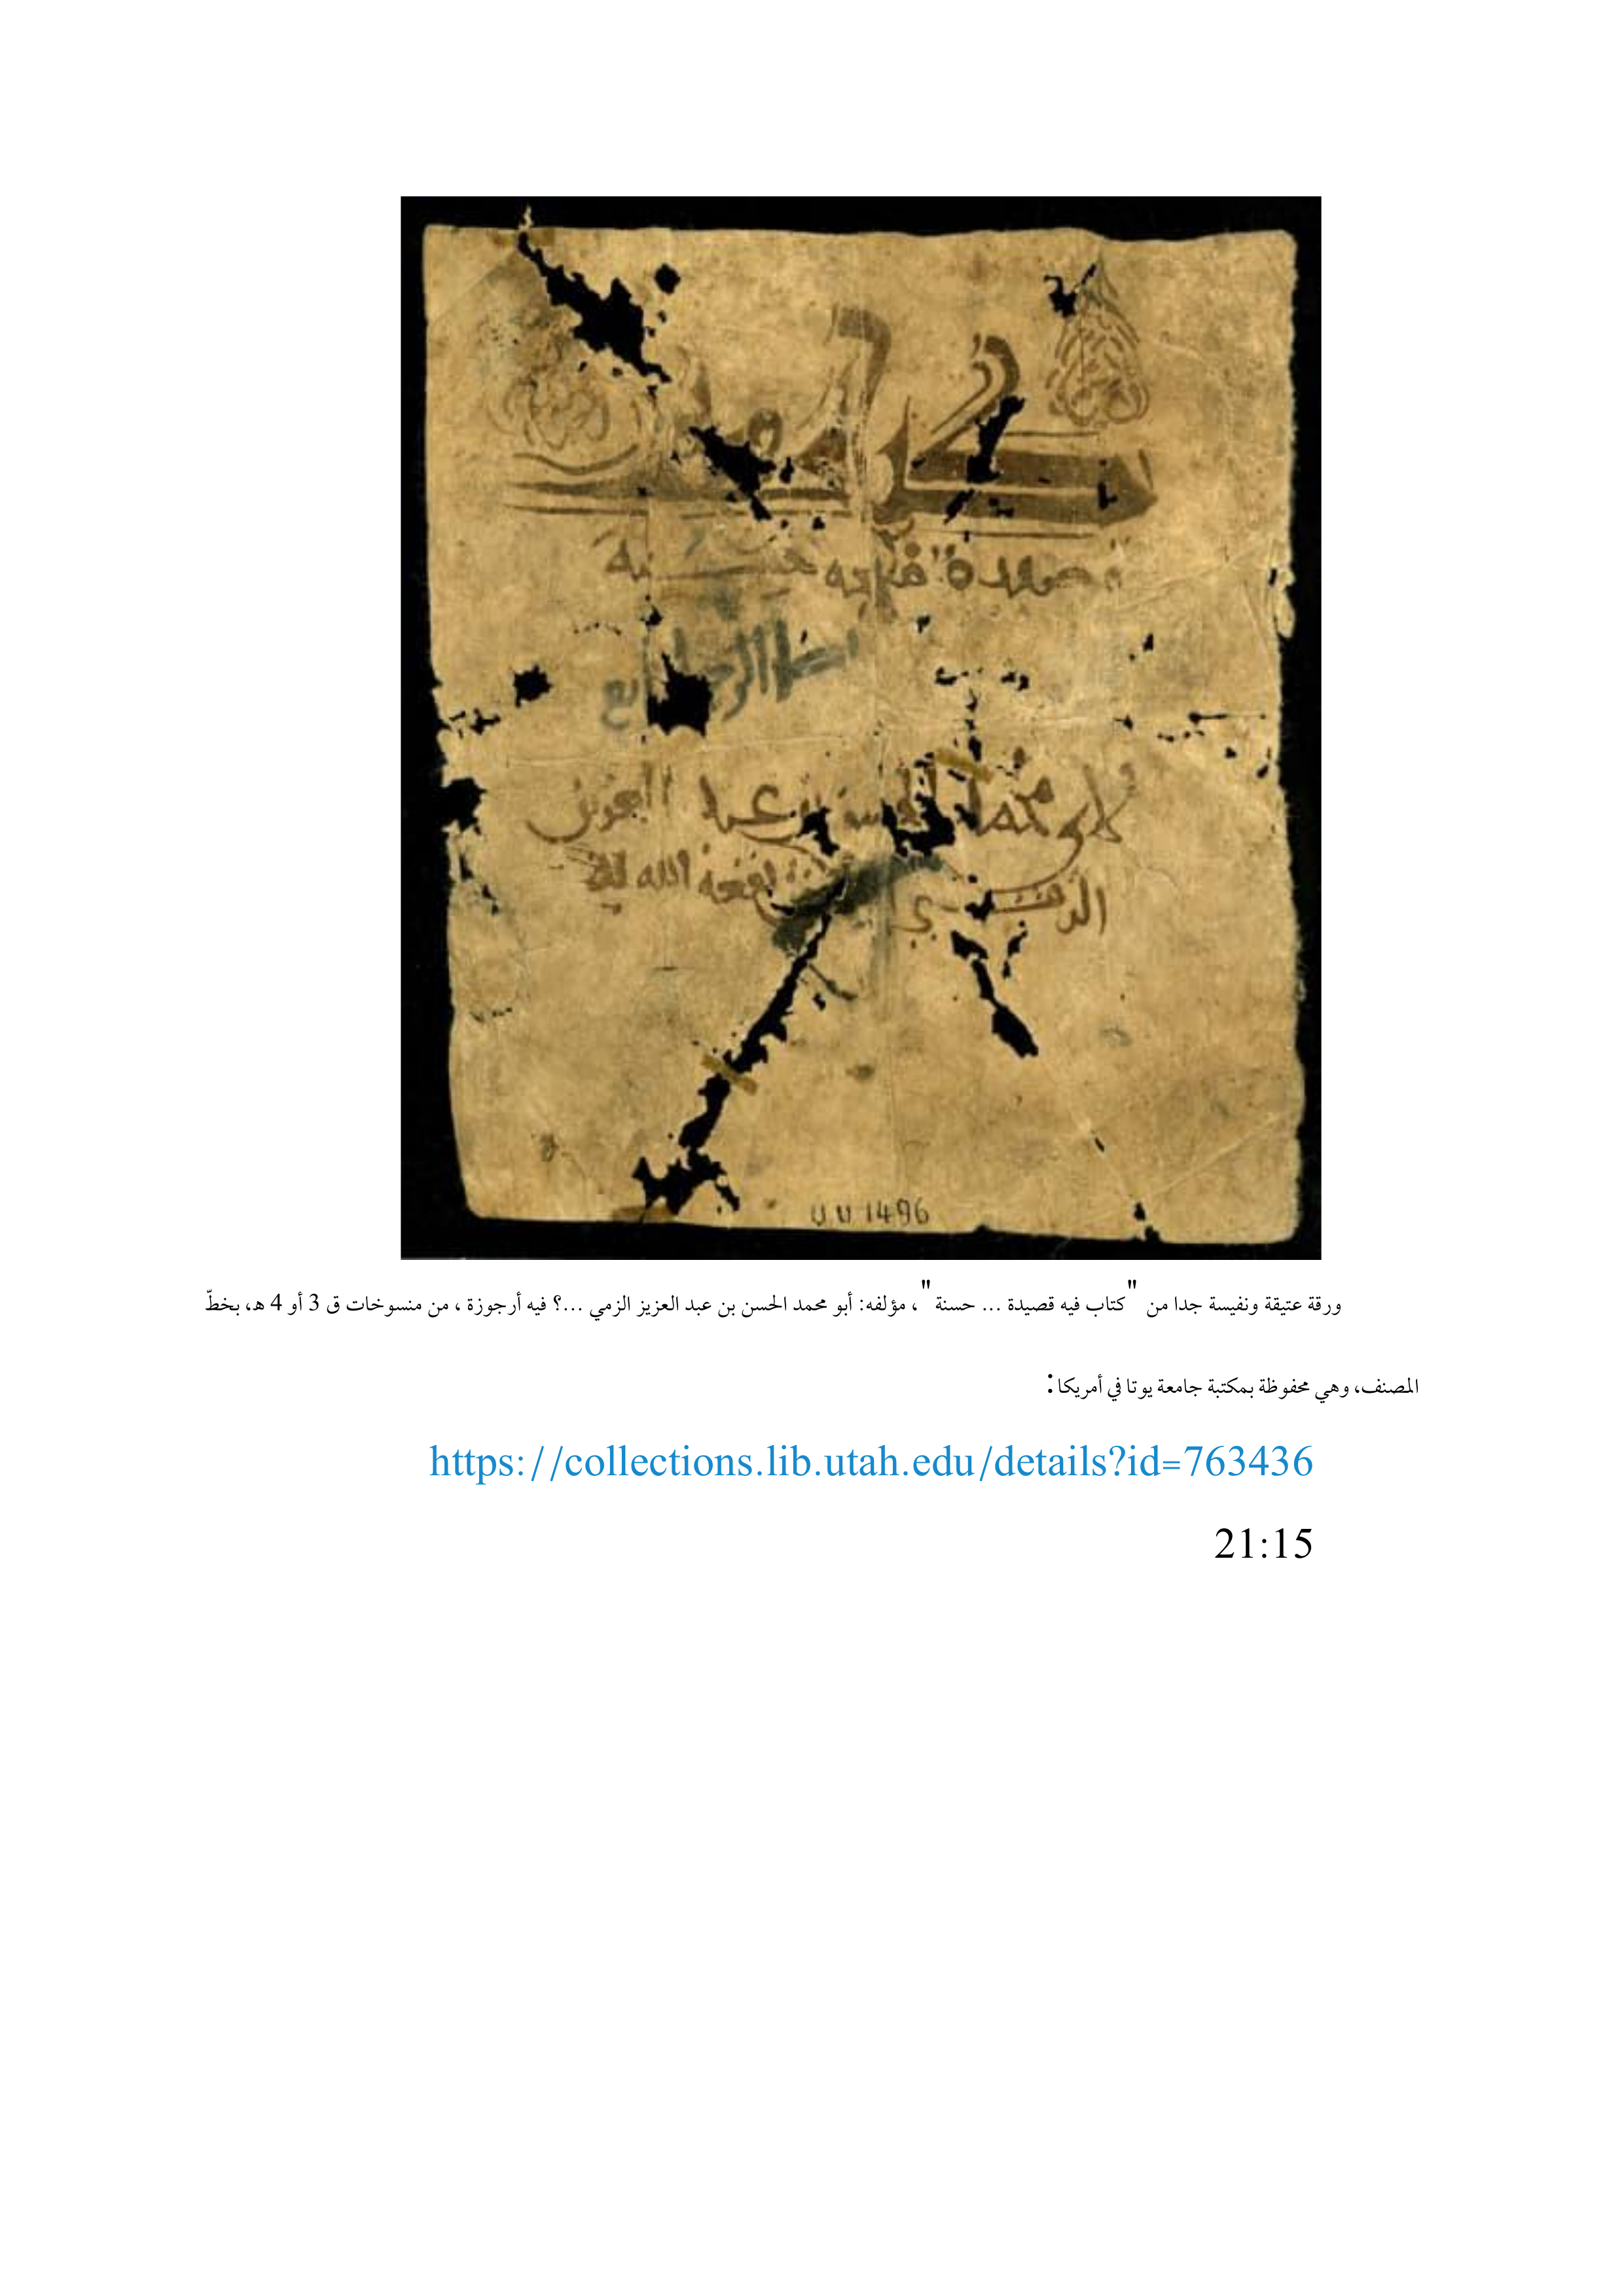 قصيدة
لابي محمد الحسن بن عبد العزيز
نفعه الله به
UU 1496
ورقة عتيقة ونفيسة جدا من "كتاب فيه قصيدة ... حسنة"، مؤلفه: أبو محمد الحسن بن عبد العزيز الزمي ...؟ فيه أرجوزة ، من منسوخات ق 3 أو 4 هـ، بخطّ
المصنف، وهي محفوظة بمكتبة جامعة يوتا في أمريكا:
https://collections.lib.utah.edu/details?id=763436
21:15